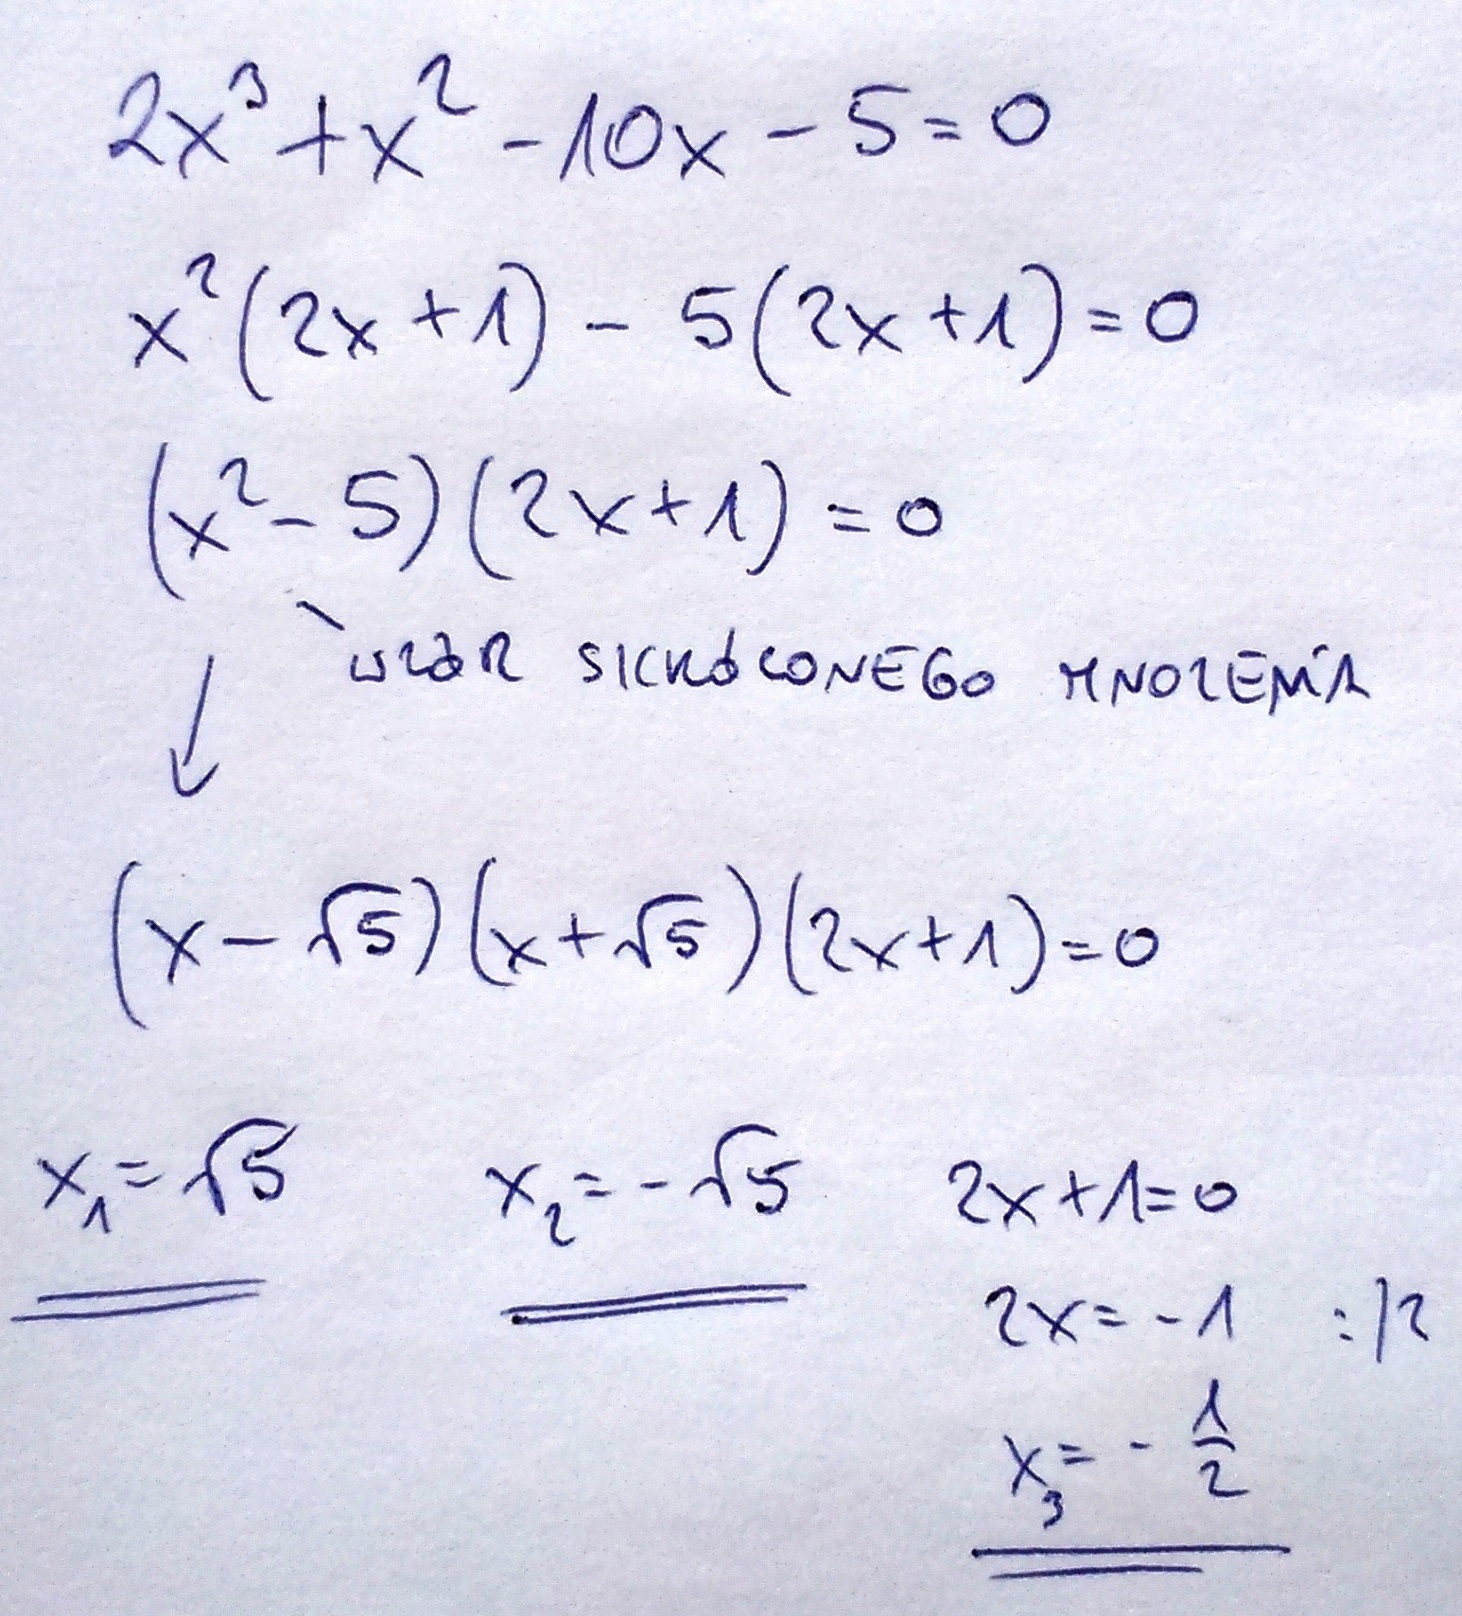 2x³ + x² - 10x - 5 = 0
x²(2x + 1) - 5(2x + 1) = 0
(x² - 5)(2x + 1) = 0
WZÓR SKRÓCONEGO MNOŻENIA
(x - √5)(x + √5)(2x + 1) = 0
x₁ = √5 x₂ = -√5 2x + 1 = 0
2x = -1 :/2
x₃ = - 1/2